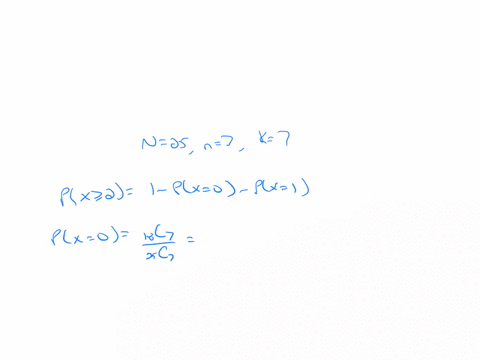 N=25, n=7, K=7
P(x≥2)= 1-P(x=0)-P(x=1)
P(x=0)= ₁₈C₇/₂₅C₇ =